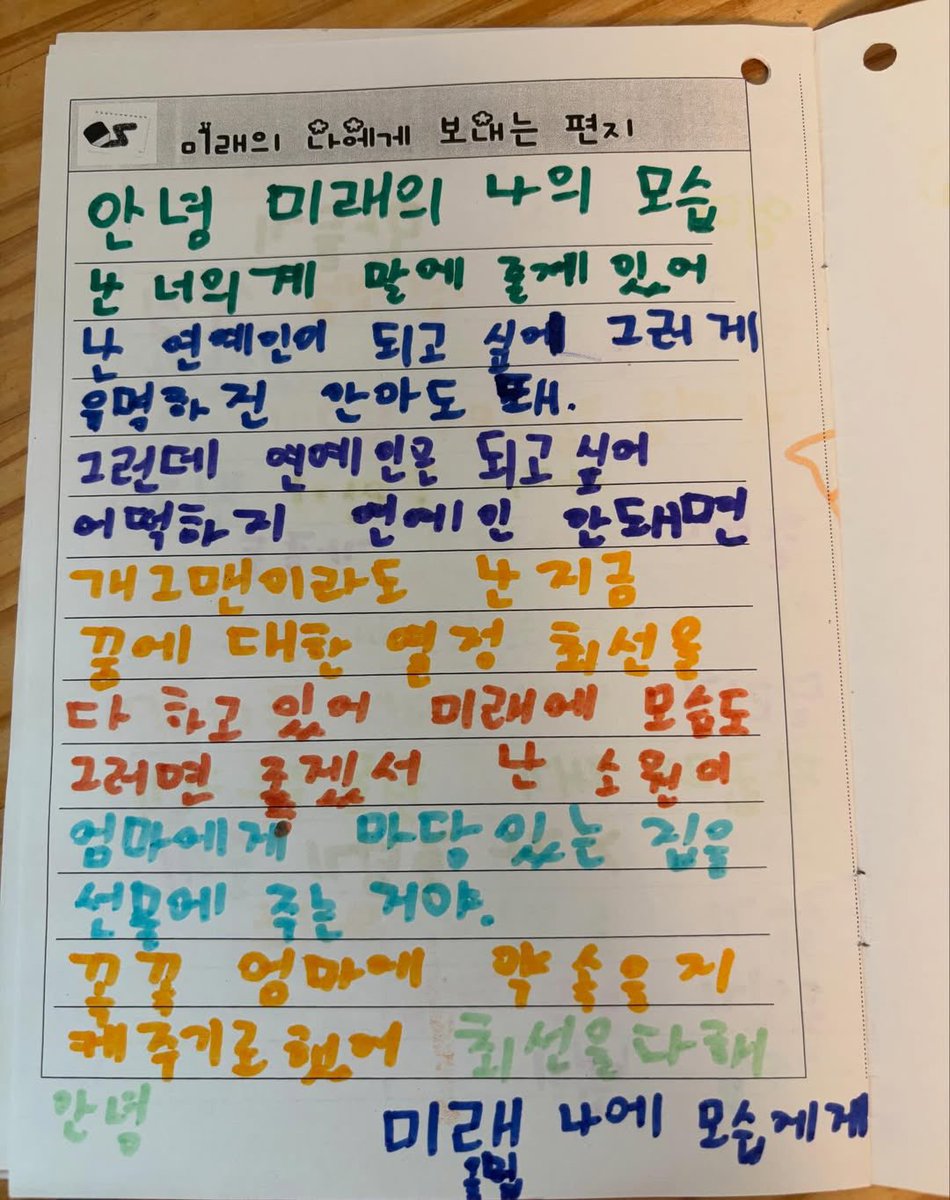 미래의 나에게 보내는 편지
안녕 미래의 나의 모습
난 너의계 말에 줄게 있어
난 연예인이 되고 싶에 그러게
유명하진 안아도 돼.
그런데 연예인은 되고싶어
어떡하지 연에인 안돼면
개그맨이라도 난지금
꿈에 대한 열정 최선을
다 하고 있어 미래에 모습도
그러면 좋겠서 난 소원이
엄마에게 마당있는 집을
선물에 주는 거야.
꼭꼭 엄마에 약속을지
켜주기로했어 최선을다해
안녕
미래 나에 모습게게